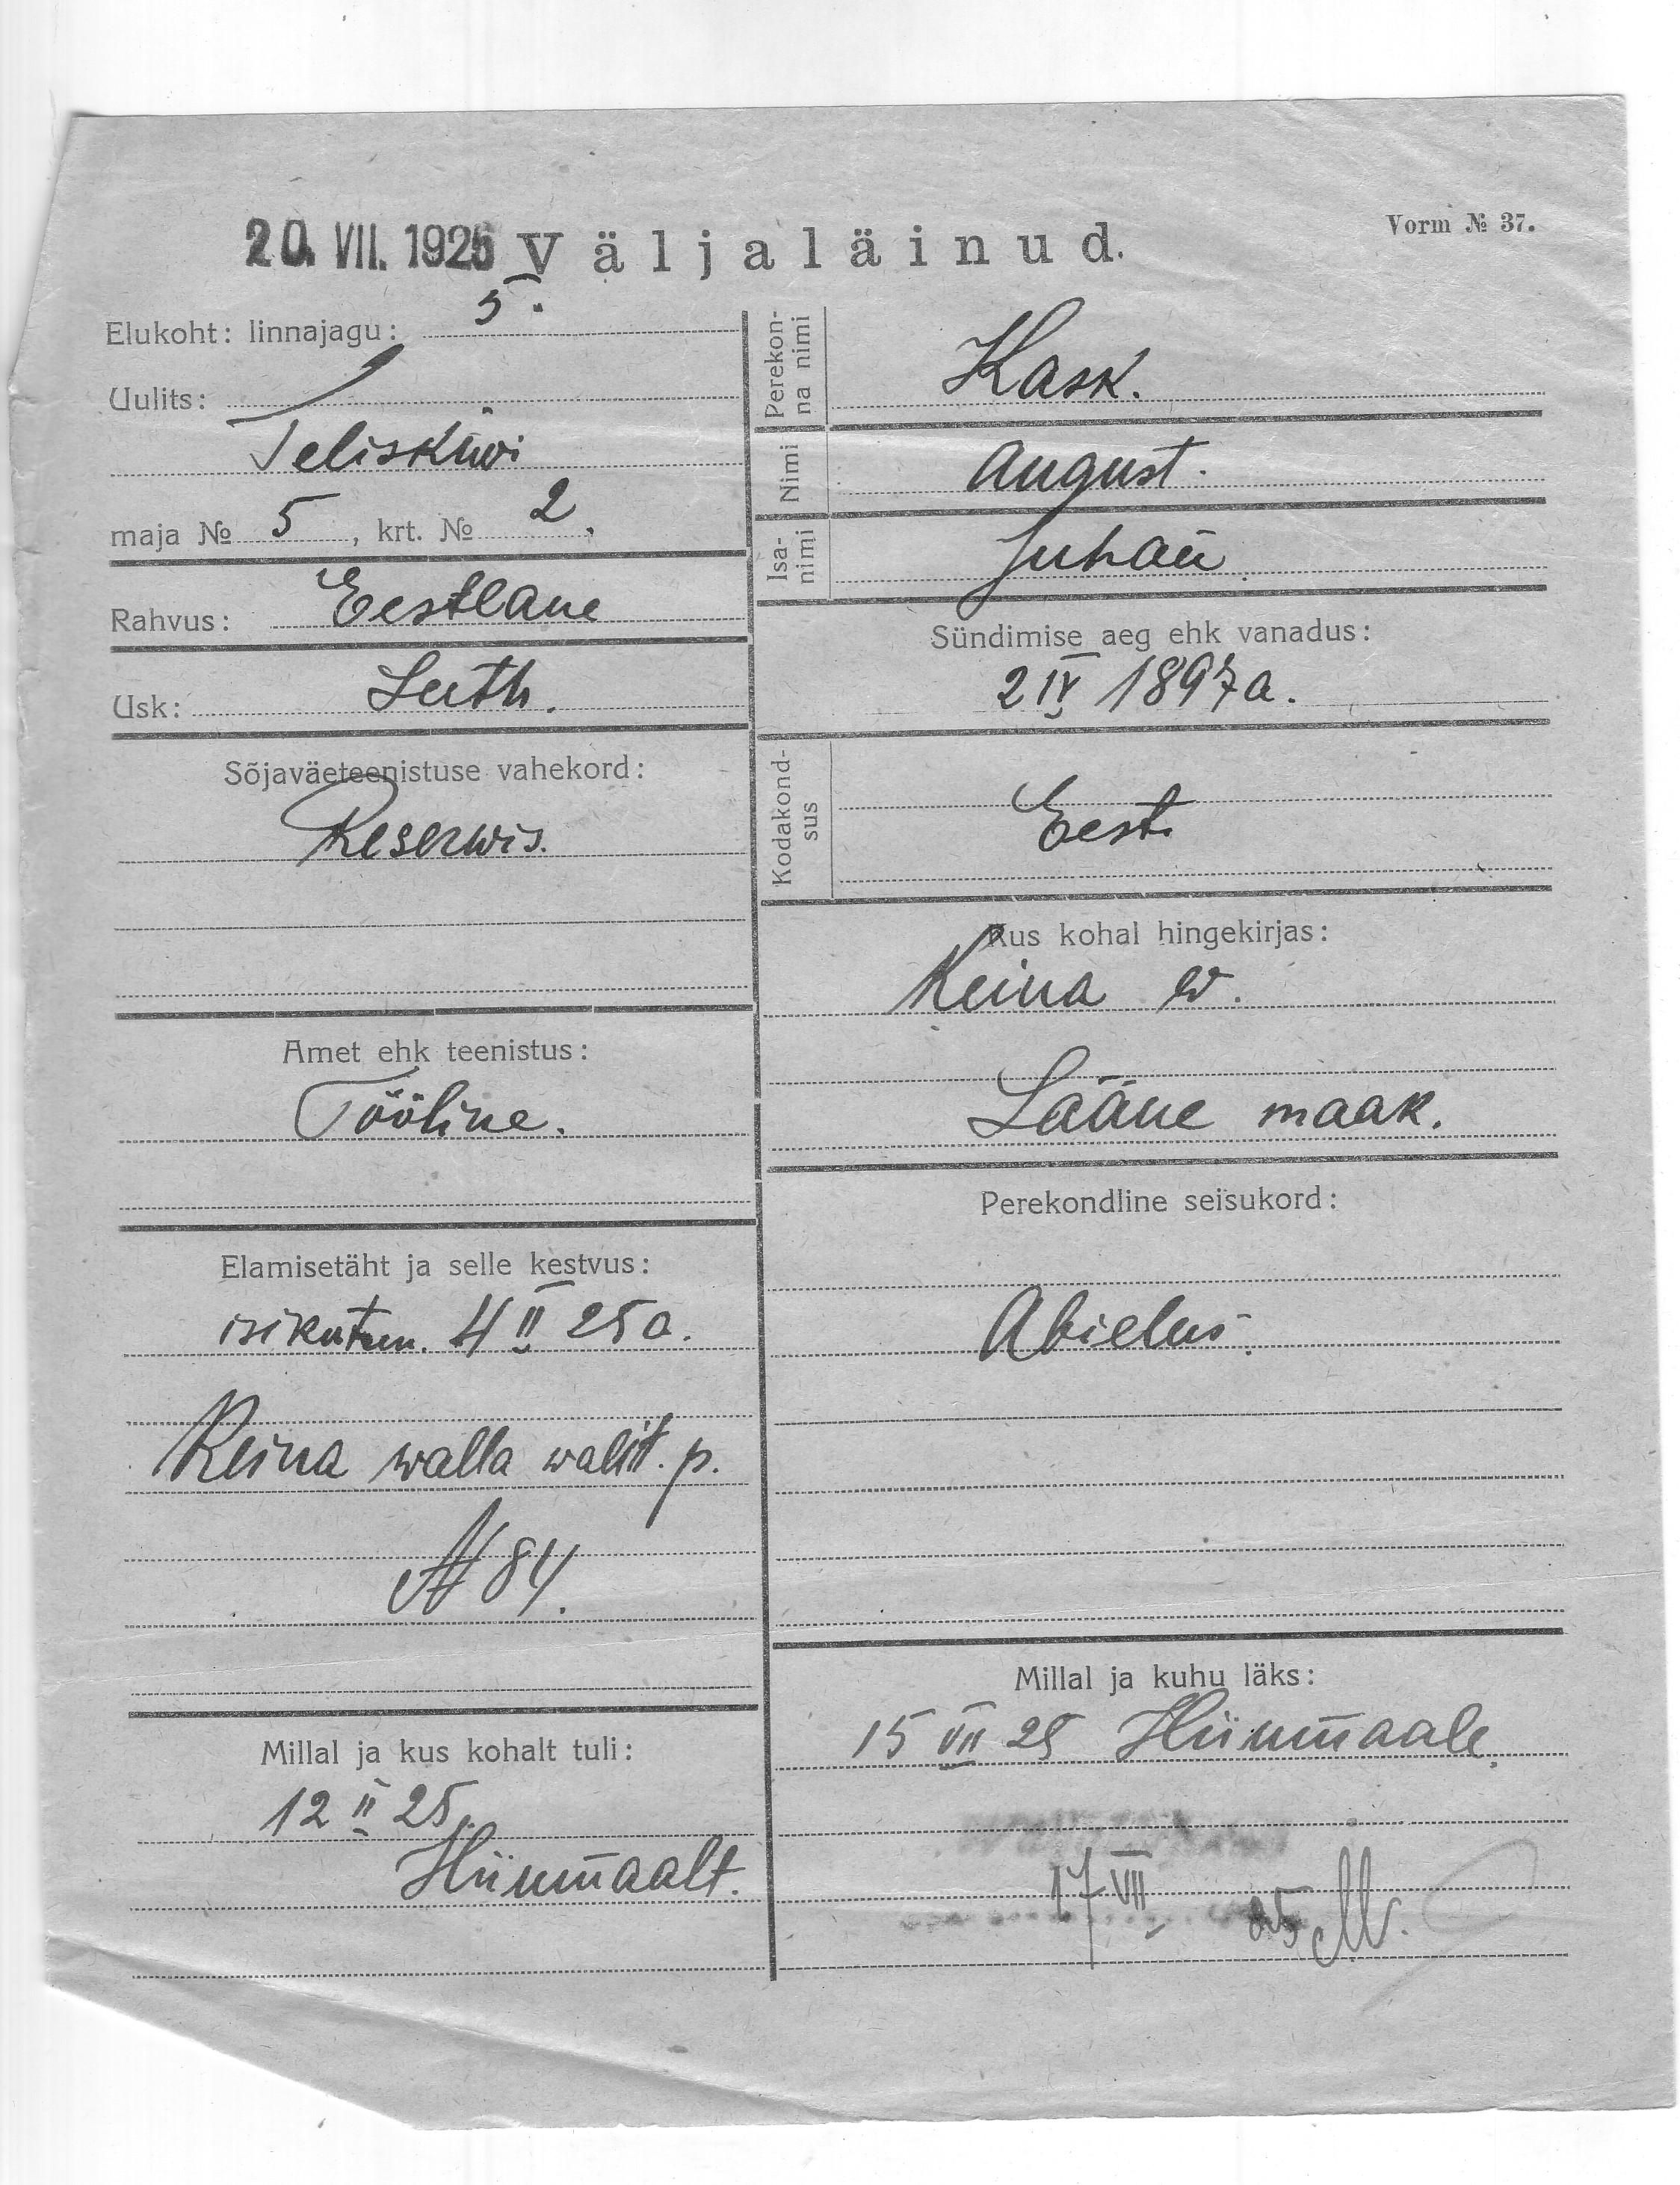 20. VII. 1925 Väljaläinud.
Vorm № 37.
Elukoht: linnajagu: 5.
Uulits:
Teliskiwi
maja № 5, krt. № 2.
Rahvus: Eestlane
Usk: Luth.
Sõjaväeteenistuse vahekord:
Reserwis.
Amet ehk teenistus:
Tööline.
Elamisetäht ja selle kestvus:
isikutun. 4 II 25 a.
Keina walla walit. p.
№ 84.
Millal ja kus kohalt tuli:
12 II 25.
Hiiumaalt.
Perekon-
na nimi
Kask.
Nimi
August.
Isa-
nimi
Juhan
Sündimise aeg ehk vanadus:
2 IV 1897 a.
Kodakond-
sus
Eesti
Kus kohal hingekirjas:
Keina w.
Lääne maak.
Perekondline seisukord:
Abielus.
Millal ja kuhu läks:
15 VII 25 Hiiumaale.
17 VII 25